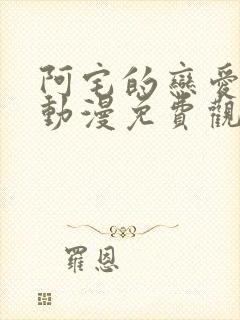 阿宅的戀愛
動漫免費觀
羅恩